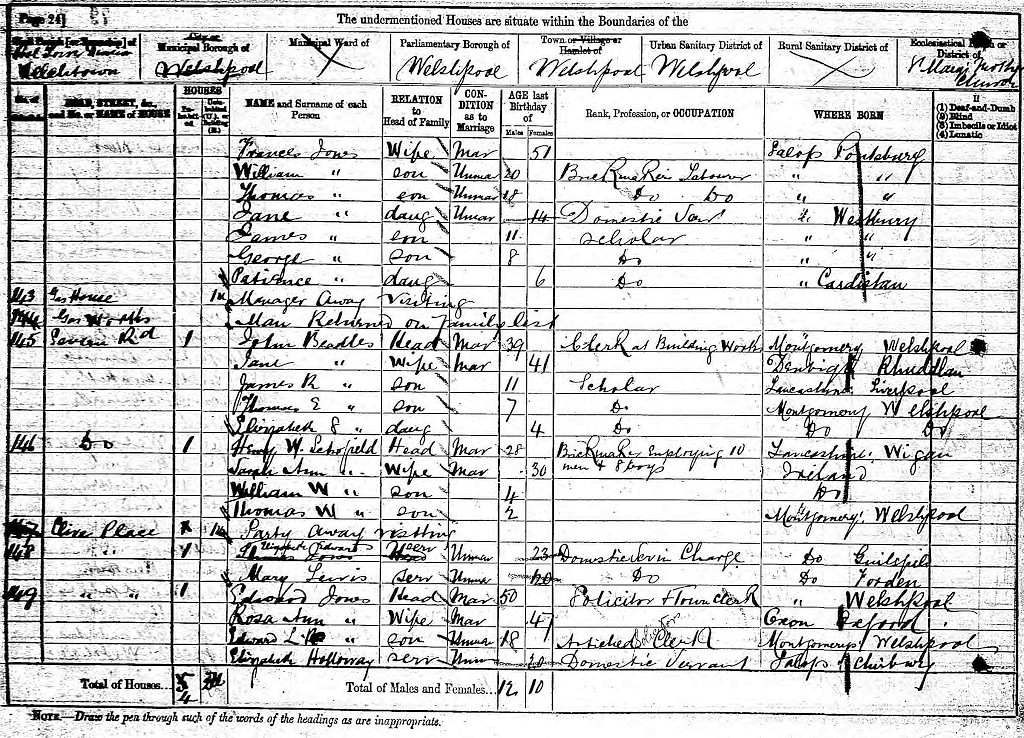 Page 24]
The undermentioned Houses are situate within the Boundaries of the
Municipal Borough of
Municipal Ward of
Parliamentary Borough of
Town or Village or Hamlet of
Urban Sanitary District of
Rural Sanitary District of
District of
Welshtown
Welshpool
Welshpool
Welshpool
Welshpool
St Mary
Church
HOUSES
NAME and Surname of each Person
RELATION to Head of Family
CONDITION as to Marriage
AGE last Birthday of
Males
Females
Rank, Profession, or OCCUPATION
WHERE BORN
If
(1) Deaf-and-Dumb
(2) Blind
(3) Imbecile or Idiot
(4) Lunatic
Frances Jones Wife Mar 51 Salop Pontesbury
William " son Unmar 20 Brickmaker Labourer " "
Thomas " son Unmar 18 Do Do " "
Jane " daug Unmar 14 Domestic Westbury
James " son 11 Scholar " "
George " son 8 Do " "
Patience " daug 6 Do " Cardistan
143 Gas House Manager Away Visiting
144 Gas Works Man Returned on family list
145 Severn Rd 1 John Beadles Head Mar 39 Clerk at Building Works Montgomery Welshpool
Jane " Wife Mar 41 Denbigh Rhuddlan
James R " son 11 Scholar Lancashire Liverpool
Thomas E " son 7 Do Montgomery Welshpool
Elizabeth S " daug 4 Do Do Do
146 Do 1 Henry W. Schofield Head Mar 28 Brickmaker Employing 10 men & 8 boys Lancashire Wigan
Sarah Ann " Wife Mar 30 Ireland
William W " son 4 Do
Thomas W " son 2 Montgomery Welshpool
147 Clive Place Party Away visiting
148 " " Elizabeth Edwards serv Unmar 23 Domestic Serv in Charge Do Guilsfield
Mary Lewis Serv Unmar 20 Do Do Forden
149 " " 1 Edward Jones Head Mar 50 Solicitor & Town Clerk " Welshpool
Rosa Ann " Wife Mar 47 Oxon Oxford
Edward " son Unmar 18 Articled Clerk Montgomery Welshpool
Elizabeth Holloway serv Unm 20 Domestic Servant Salop Chirbury
Total of Houses...
Total of Males and Females... 12 10
NOTE.—Draw the pen through such of the words of the headings as are inappropriate.